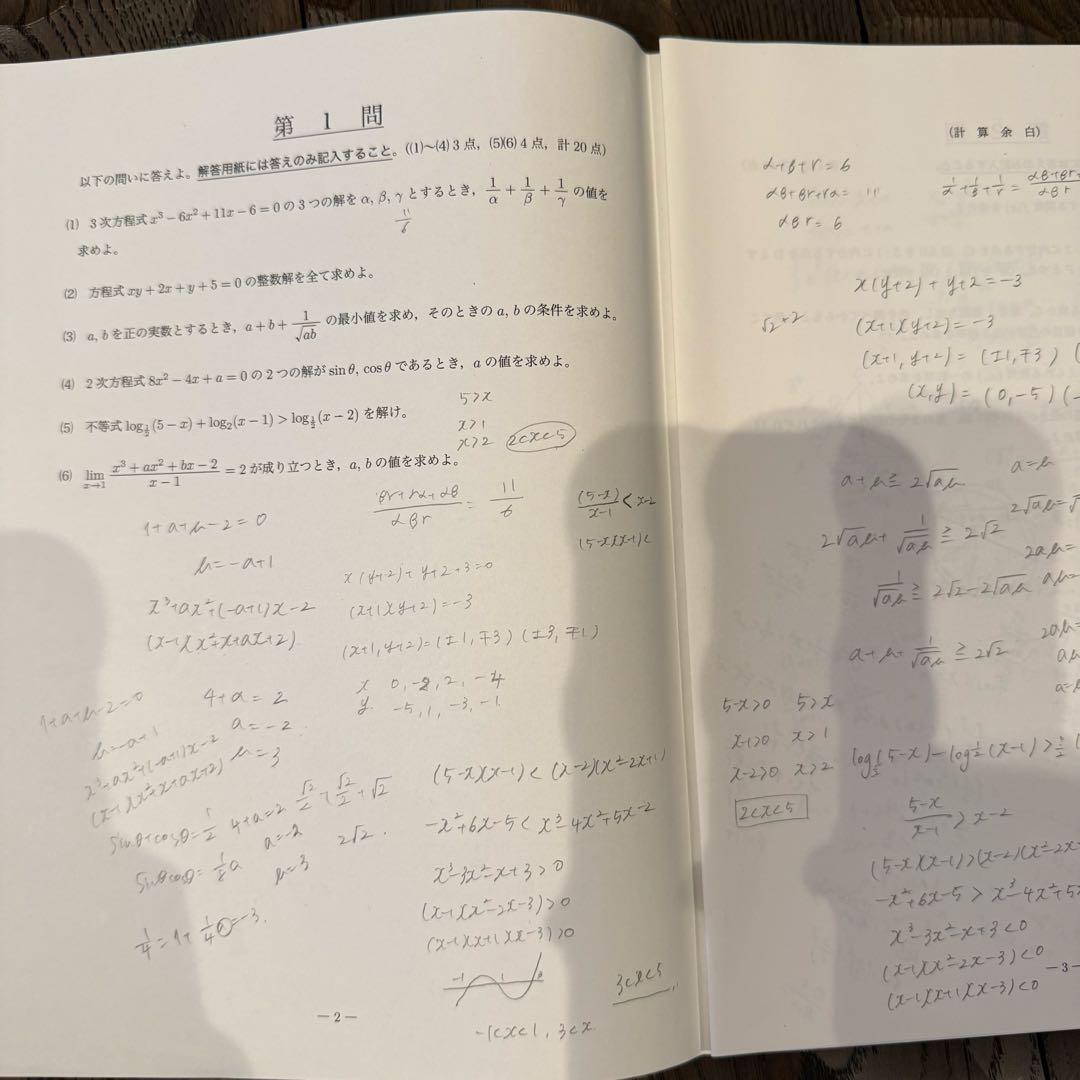 第 1 問
以下の問いに答えよ。解答用紙には答えのみ記入すること。((1)~(4) 3点, (5)(6) 4点, 計20点)
(1) 3次方程式 x³-6x²+11x-6=0 の3つの解を α, β, γ とするとき, 1/α + 1/β + 1/γ の値を
11/6
求めよ。
(2) 方程式 xy+2x+y+5=0 の整数解を全て求めよ。
(3) a, b を正の実数とするとき, a+b+1/√ab の最小値を求め, そのときの a, b の条件を求めよ。
(4) 2次方程式 8x²-4x+a=0 の2つの解が sinθ, cosθ であるとき, a の値を求めよ。
5>x
(5) 不等式 log_{1/2}(5-x)+log₂(x-1)>log_{1/2}(x-2) を解け。
x>1
x>2 2<x<5
(6) lim_{x→1} (x³+ax²+bx-2)/(x-1) = 2 が成り立つとき, a, b の値を求めよ。
1+a+b-2=0
b=-a+1
x³+ax²+(-a+1)x-2
(x-1)(x²+x+ax+2)
4+a=2
a=-2
b=3
(βγ+γα+αβ)/αβγ = 11/6
(5-x)/(x-1) < x-2
(5-x)(x-1)<
x(y+2)+y+2+3=0
(x+1)(y+2)=-3
(x+1, y+2)=(±1, ∓3) (±3, ∓1)
x 0, -2, 2, -4
y -5, 1, -3, -1
1+a+b-2=0
b=-a+1
x³+ax²+(-a+1)x-2
(x-1)(x²+x+ax+2)
4+a=2
a=-2
b=3
sinθ+cosθ=1/2
sinθcosθ=1/8a
1/4=1+1/4a=-3.
√2/2+√2/2+√2
2√2.
(5-x)(x-1)<(x-2)(x²-2x+1)
-x²+6x-5<x³-4x²+5x-2
x³-3x²-x+3>0
(x-1)(x²-2x-3)>0
(x-1)(x+1)(x-3)>0
-1 1
3<x<5
-1<x<1, 3<x
-2-
(計算余白)
α+β+γ=6
αβ+βγ+γα=11
αβγ=6
1/α+1/β+1/γ=(αβ+βγ+/αβγ
x(y+2)+y+2=-3
(x+1)(y+2)=-3
(x+1, y+2)=(±1, ∓3) (
(x,y)=(0,-5)(-
a+b≧2√ab
a=b
2√ab+1/√ab≧2√2
2√ab=
1/√ab≧2√2-2√ab
2ab=
ab=
a+b+1/√ab≧2√2
2ab=
a=
5-x>0 5>x
x-1>0 x>1
x-2>0 x>2
2<x<5
log_{1/2}(5-x)-log_{1/2}(x-1)>
(5-x)/(x-1)>x-2
(5-x)(x-1)>(x-2)(x²-2x
-x²+6x-5>x³-4x²+5x
x³-3x²-x+3<0
(x-1)(x²-2x-3)<0
(x-1)(x+1)(x-3)<0
-3-